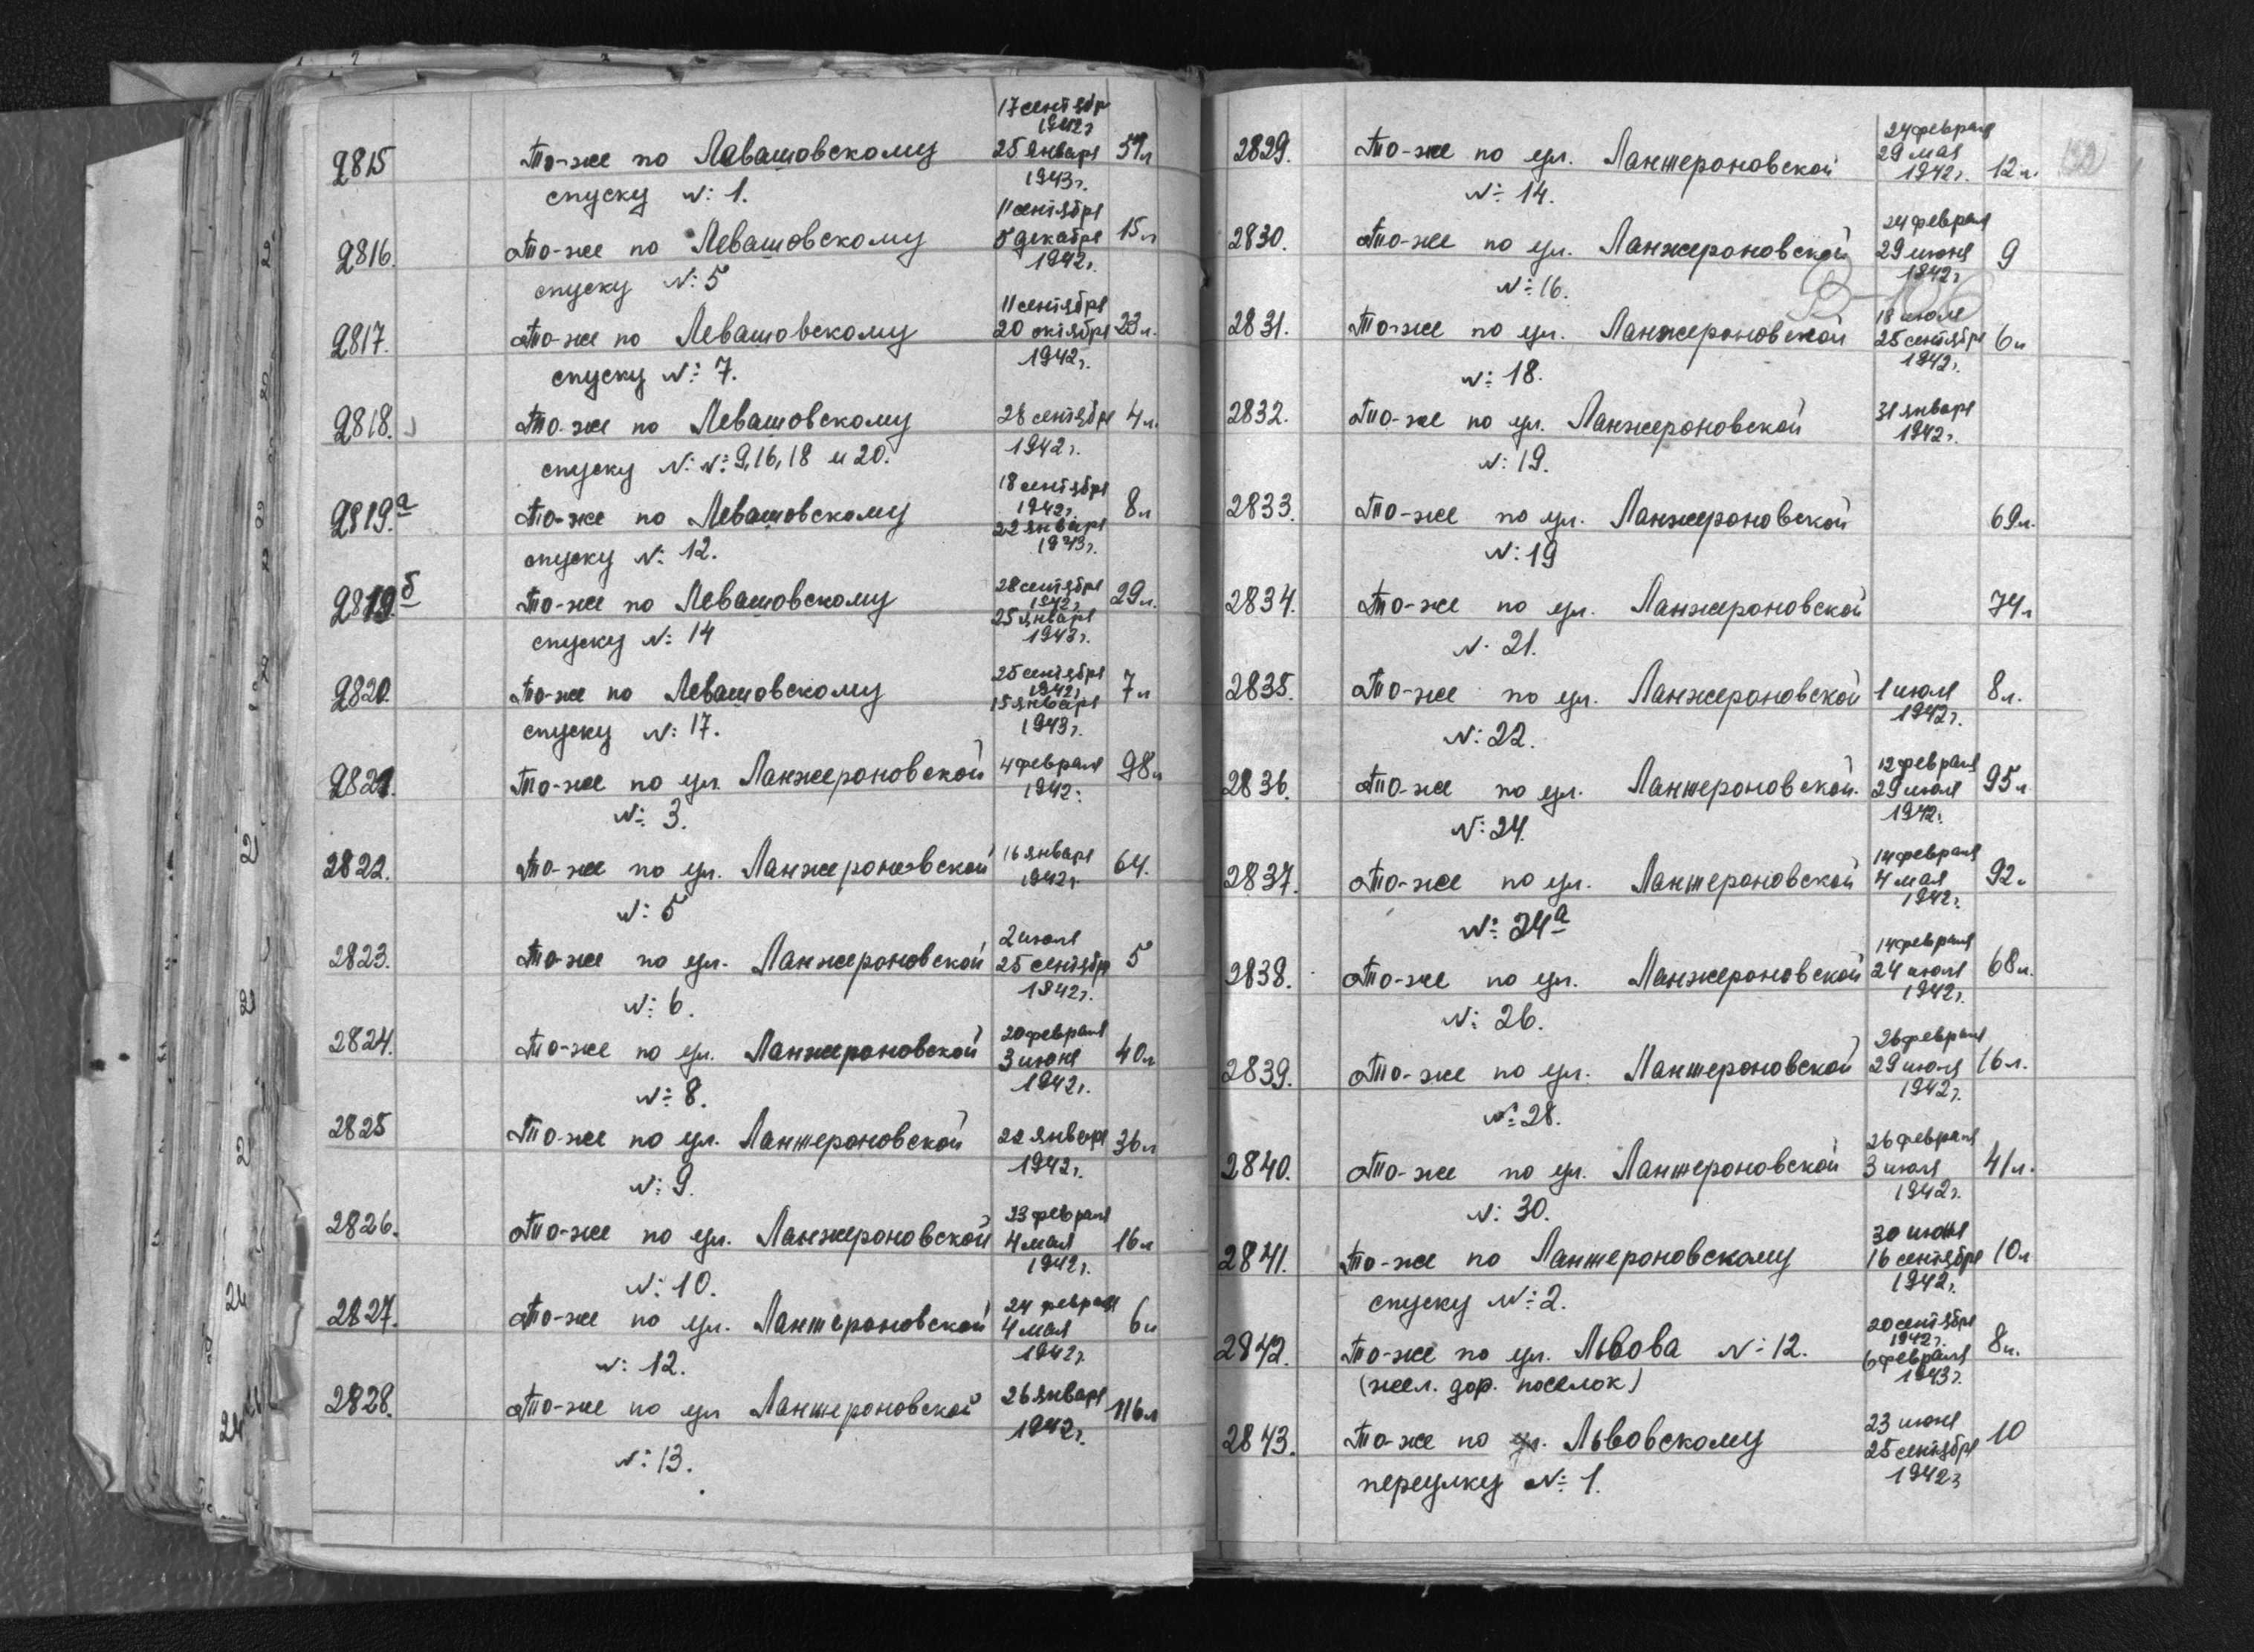 17 сентябр
1942г
2815 То-же по Левашовскому 25 января
1943г.
спуску №: 1.
2816. То-же по Левашовскому 11 сентября 8 декабря 1942г. 15л
спуску №: 5
2817. То-же по Левашовскому 11 сентября 20 октября 1942г. 23л.
спуску №: 7.
2818. То-же по Левашовскому 28 сентября 1942г. 4л.
спуску №: №: 9, 16, 18 и 20.
2819.а То-же по Левашовскому 18 сентября 1942г. 22 января 1943г. 8л
спуску №: 12.
2819.б То-же по Левашовскому 28 сентября 1942г. 25 января 1943г. 29л.
спуску №: 14
2820. То-же по Левашовскому 25 сентября 1942г. 15 января 1943г. 7л
спуску №: 17.
2821. То-же по ул. Ланжероновской 4 февраля 1942г. 98л
№: 3.
2822. То-же по ул. Ланжероновской 16 января 1942г. 64.
№: 5
2823. То-же по ул. Ланжероновской 2 июля 25 сентябр 1942г. 5
№: 6.
2824. То-же по ул. Ланжероновской 20 февраля 3 июня 1942г. 40л
№: 8.
2825 То-же по ул. Ланжероновской 22 января 1942г. 36л
№: 9.
2826. То-же по ул. Ланжероновской 23 февраля 4 мая 1942г. 16л
№: 10.
2827. То-же по ул. Ланжероновской 24 февраля 4 мая 1942г. 6л
№: 12.
2828. То-же по ул Ланжероновской 26 января 1942г. 116л
№: 13.
2829. То-же по ул. Ланжероновской 24 февраля 29 мая 1942г. 12л.
№: 14.
2830. То-же по ул. Ланжероновской 24 февраля 29 июня 1942г. 9
№: 16.
2831. То-же по ул. Ланжероновской 18 июля 25 сентября 1942г. 6л
№: 18.
2832. То-же по ул. Ланжероновской 31 января 1942г.
№: 19.
2833. То-же по ул. Ланжероновской 69л.
№: 19
2834. То-же по ул. Ланжероновской 74л
№. 21.
2835. То-же по ул. Ланжероновской 1 июля 1942г. 8л.
№: 22.
2836. То-же по ул. Ланжероновской. 12 февраля 29 июля 1942г. 95л
№: 24.
2837. То-же по ул. Ланжероновской 14 февраля 4 мая 1942г. 92л
№: 24а
2838. То-же по ул. Ланжероновской 14 февраля 24 июля 1942г. 68л.
№: 26.
2839. То-же по ул. Ланжероновской 26 февраля 29 июля 1942г. 16л.
№: 28.
2840. То-же по ул. Ланжероновской 26 февраля 3 июля 1942г. 41л.
№: 30.
2841. То-же по Ланжероновскому 30 июня 16 сентября 1942г. 10л
спуску №: 2.
2842. То-же по ул. Львова №: 12. 20 сентября 1942г. 6 февраля 1943г. 8л.
(жел. дор. поселок)
2843. То-же по ул. Львовскому 23 июня 25 сентября 1942г 10
переулку №: 1.